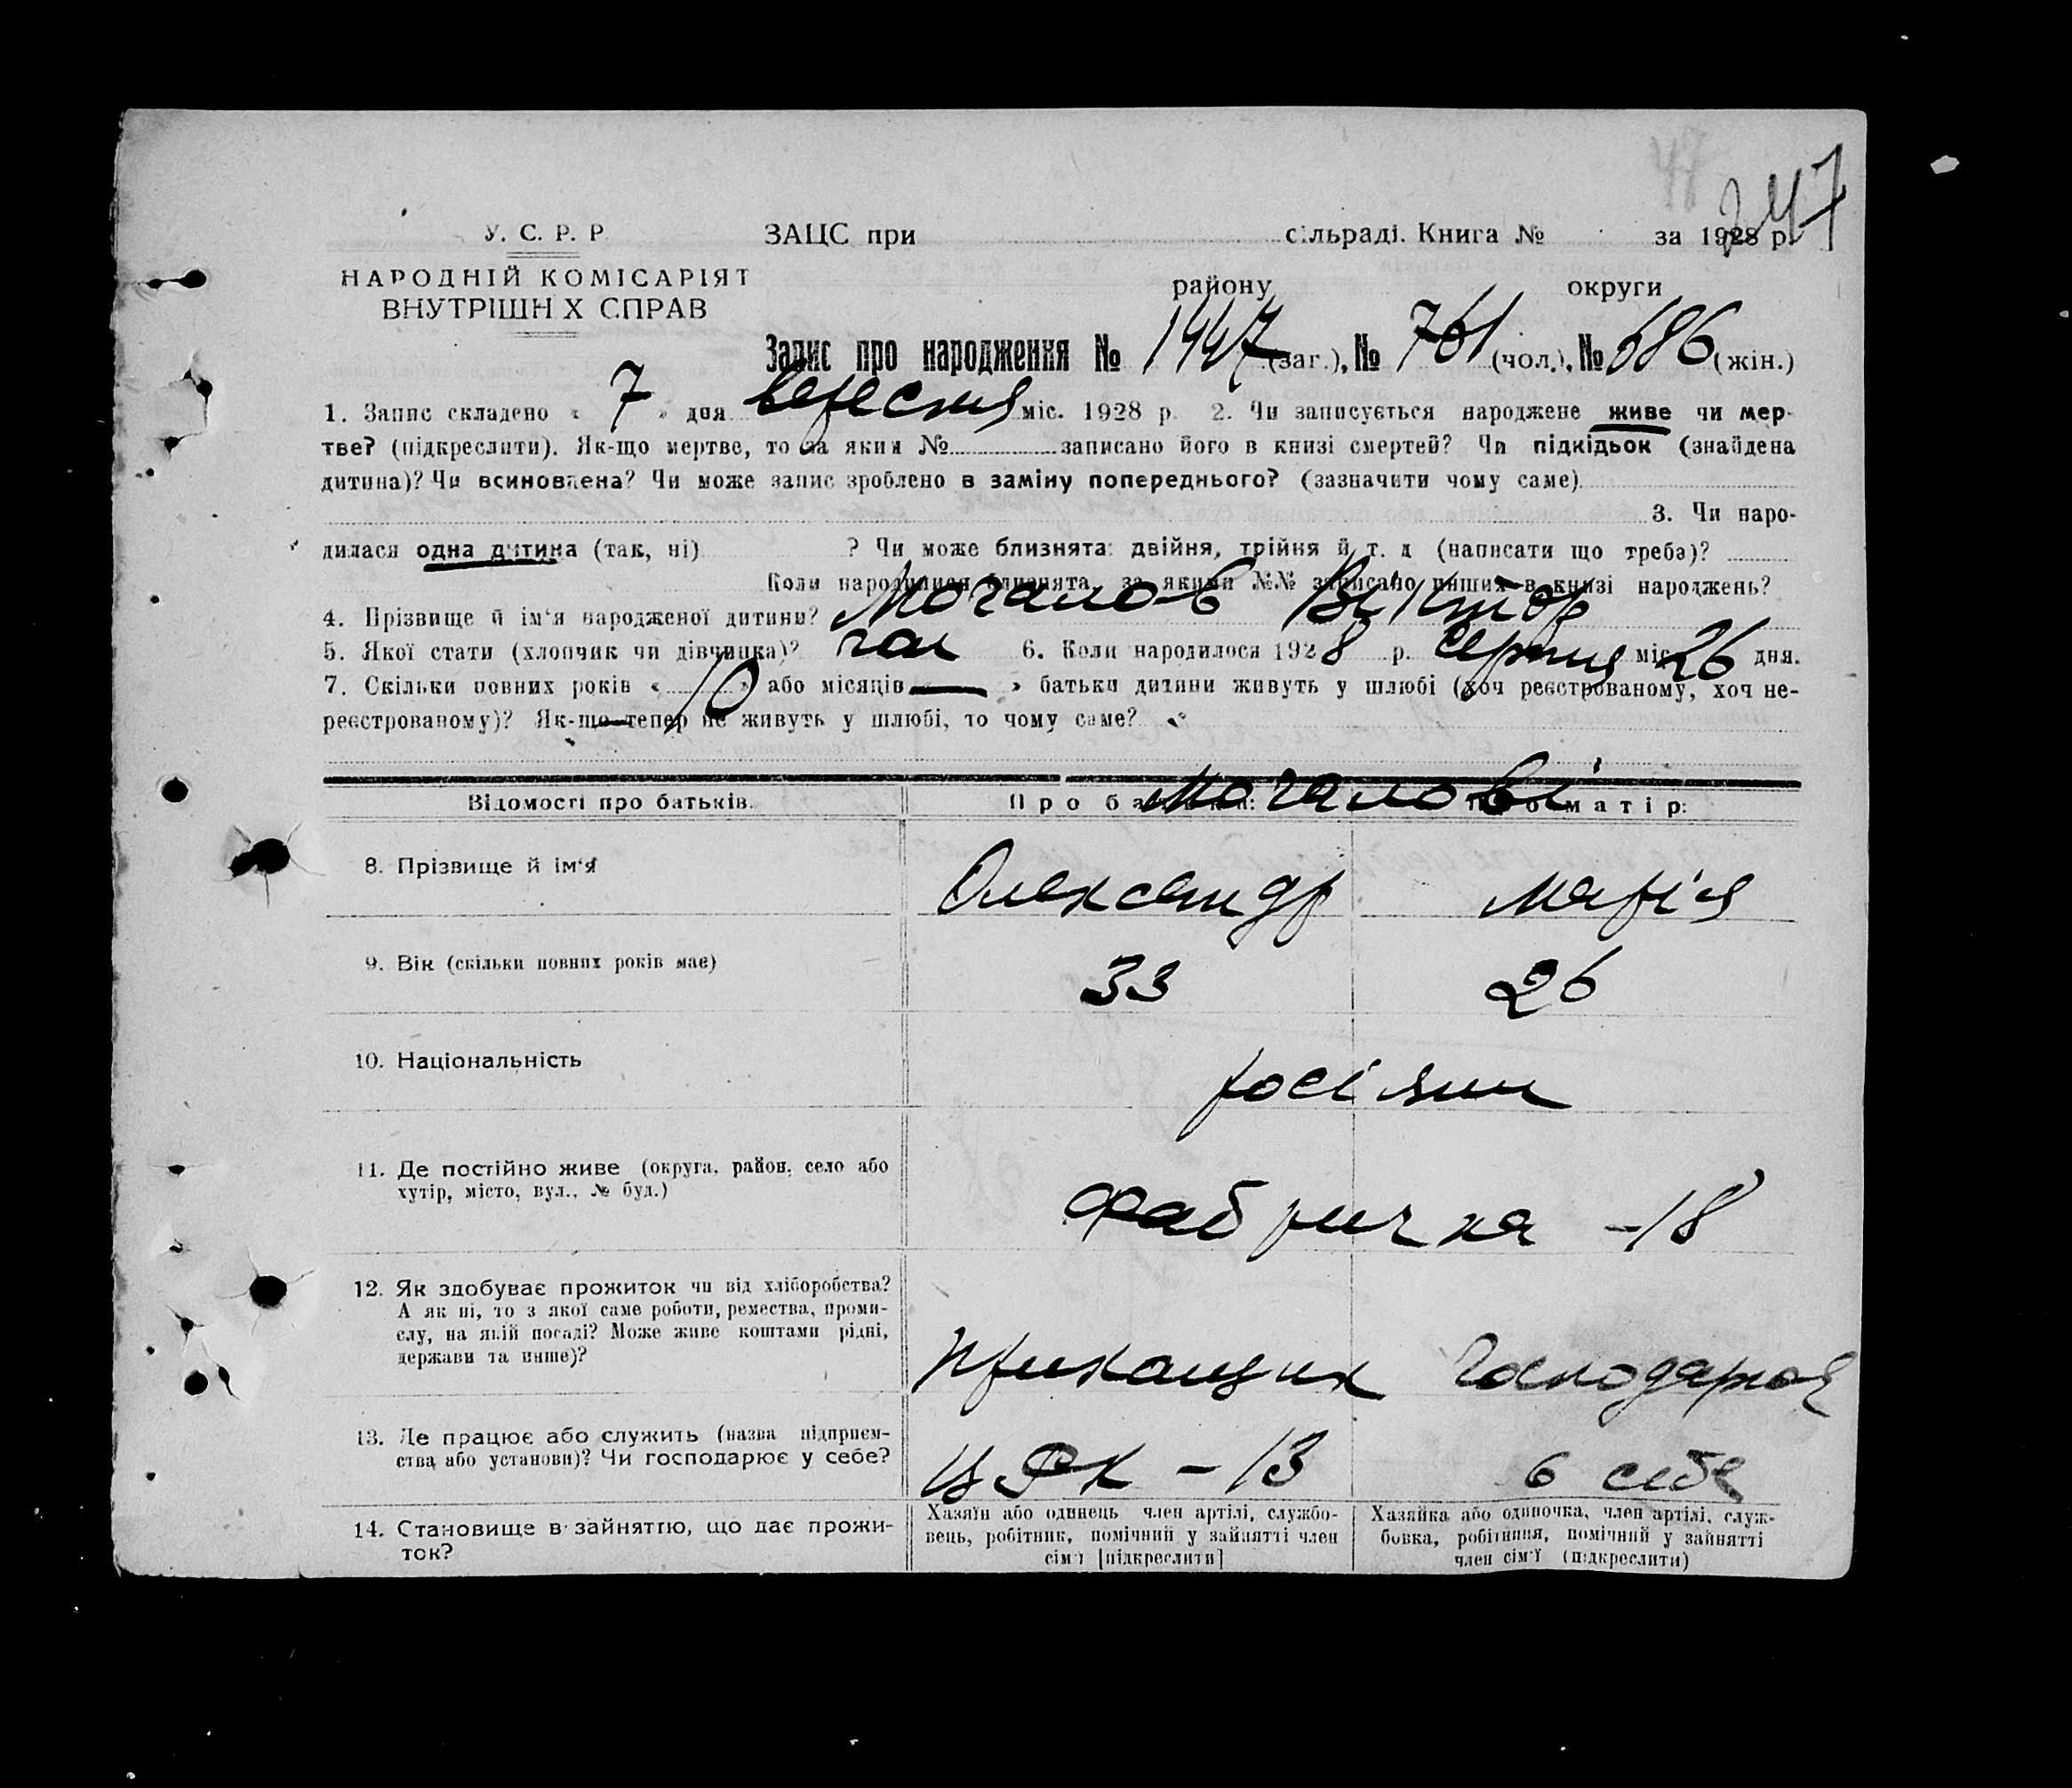 247
У. С. Р. Р
ЗАЦС при сільраді. Книга № за 1928 р.
НАРОДНІЙ КОМІСАРІЯТ
ВНУТРІШНІХ СПРАВ
району округи
Запис про народження № 1447 (заг.), № 761 (чол.), № 686 (жін.)
1. Запис складено « 7 » дня вересня міс. 1928 р. 2. Чи записується народжене живе чи мер-
тве? (підкреслити). Як-що мертве, то за яким № записано його в книзі смертей? Чи підкідьок (знайдена
дитина)? Чи всиновлена? Чи може запис зроблено в заміну попереднього? (зазначити чому саме)
3. Чи наро-
дилася одна дитина (так, ні) ? Чи може близнята: двійня, трійня й т. д (написати що треба)?
Коли народилися близнята, за якими №№ записано инших в книзі народжень?
4. Прізвище й ім'я народженої дитини? Мочалов Віктор
5. Якої стати (хлопчик чи дівчинка)? чол 6. Коли народилося 1928 р. серпня міс. 26 дня.
7. Скільки повних років « 10 » або місяців « — » батьки дитини живуть у шлюбі (хоч реєстрованому, хоч не-
реєстрованому)? Як-що тепер не живуть у шлюбі, то чому саме?
Мочалові
Відомості про батьків. Про батька: Про матір:
8. Прізвище й ім'я Олександр Марія
9. Вік (скільки повних років має) 33 26
10. Національність росіяни
11. Де постійно живе (округа, район, село або
хутір, місто, вул., № буд.)
Фабрична - 18
12. Як здобуває прожиток чи від хліборобства?
А як ні, то з якої саме роботи, ремества, проми-
слу, на якій посаді? Може живе коштами рідні,
держави та инше)?
прикащик господарює
13. Де працює або служить (назва підприєм-
ства або установи)? Чи господарює у себе?
ЦРК - 13 в себе
14. Становище в зайняттю, що дає прожи-
ток?
Хазяїн або одинець член артілі, службо-
вець, робітник, помічний у зайнятті член
сім'ї [підкреслити]
Хазяйка або одиночка, член артілі, служ-
бовка, робітниця, помічний у зайнятті
член сім'ї (підкреслити)